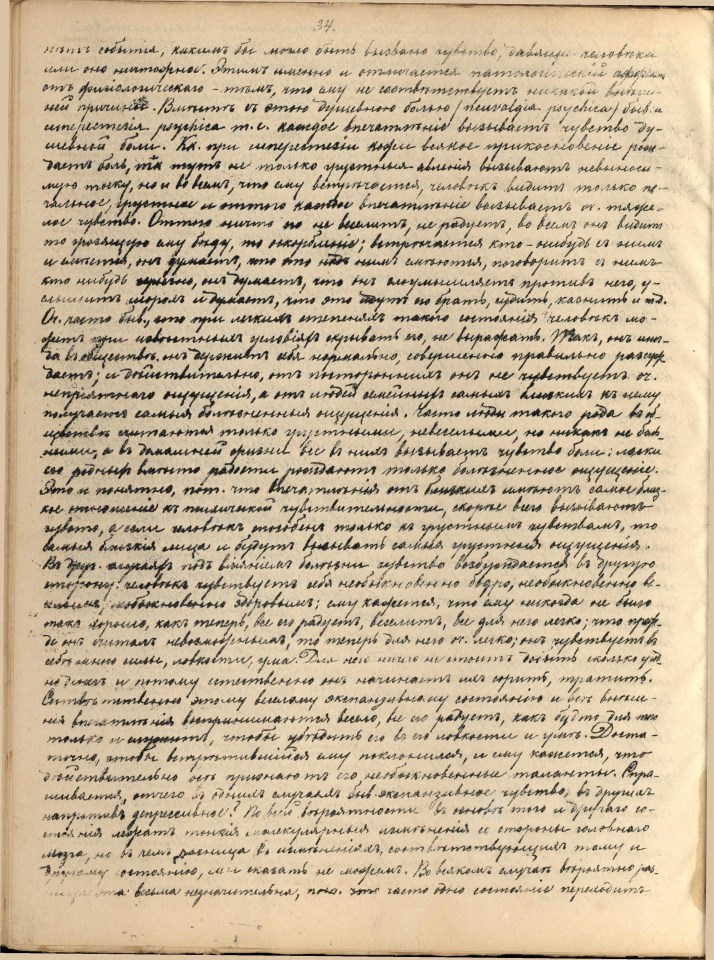 34.
нѣтъ событія, какимъ бы могло быть вызвано чувство, человѣка
или оно ничтожное. Этимъ именно и отличается патологическій аффектъ
отъ физіологическаго - тѣмъ, что ему не соотвѣтствуетъ никакой внѣш-
ней причины. Вмѣстѣ съ этою душевною болью (neuralgia psychica) быв. и
иперестезія psychica т. е. каждое впечатлѣніе вызываетъ чувство ду-
шевной боли. Кк. при иперестезіи кожи всякое прикосновеніе рож-
даетъ боль, тк тутъ не только грустныя явленія вызываютъ невыноси-
мую тоску, но и во всемъ, что ему встрѣчается, человѣкъ видитъ только пе-
чальное, грустное и оттого каждое впечатлѣніе вызываетъ оч. тяже-
лое чувство. Оттого ничто его не веселитъ, не радуетъ, во всемъ онъ видитъ
то грозящую ему бѣду, то оскорбленіе; встрѣчается кто-нибудь съ нимъ
и смѣется, онъ думаетъ, что это надъ нимъ смѣются, поговоритъ съ нимъ
кто нибудь онъ думаетъ, что онъ злоумышляетъ противъ него, у-
слышитъ шорохъ и думаетъ, что это идутъ его брать, судить, казнить и тд.
Оч. часто быв., что при легкихъ степеняхъ такого состоянія человѣкъ мо-
жетъ при извѣстныхъ условіяхъ скрывать его, не выражать. Такъ, онъ иног-
да въ обществѣ, онъ держитъ себя нормально, совершенно правильно разсуж-
даетъ; и дѣйствительно, отъ постороннихъ онъ не чувствуетъ оч.
непріятнаго ощущенія, а отъ людей семейныхъ самыхъ близкихъ къ нему
получаетъ самыя болѣзненныя ощущенія. Часто люди такого рода въ об-
ществѣ считаются только грустными, невеселыми, но никакъ не боль-
ными, а въ домашней жизни все въ нихъ вызываетъ чувство боли: ласки
его родныхъ вмѣсто радости рождаютъ только болѣзненное ощущеніе.
Это и понятно, пот. что впечатлѣнія отъ близкихъ имѣютъ самое близ-
кое отношеніе къ психической чувствительности, скорѣе всего вызываютъ
чувство, а если человѣкъ способенъ только къ грустнымъ чувствамъ, то
самыя близкія лица и будутъ вызывать самыя грустныя ощущенія.
Въ друг. случаяхъ подъ вліяніемъ болѣзни чувство возбуждается въ другую
сторону: человѣкъ чувствуетъ себя необыкновенно бодро, необыкновенно ве-
селымъ, необыкновенно здоровымъ; ему кажется, что ему никогда не было
такъ хорошо, какъ теперь, все его радуетъ, веселитъ, все для него легко; что преж-
де онъ считалъ невозможнымъ, то теперь для него оч. легко; онъ чувствуетъ въ
себѣ много силы, ловкости, ума. Для него ничего не стоитъ добыть сколько угод-
но денегъ и потому естественно онъ начинаетъ ихъ сорить, тратить.
Соотвѣтственно этому веселому экспанзивному состоянію и всѣ внѣш-
нія впечатлѣнія воспринимаются весело, все его радуетъ, какъ будто для того
только и чтобы убѣдить его въ его ловкости и умѣ. Доста-
точно, чтобы встрѣтившійся ему поклонился, и ему кажется, что
дѣйствительно всѣ признаютъ его необыкновенные таланты. Спра-
шивается, отчего въ однихъ случаяхъ быв. экспанзивное чувство, въ другихъ
напротивъ депрессивное? По всей вѣроятности въ основѣ того и другаго со-
стоянія лежатъ тонкія молекулярныя измѣненія со стороны головнаго
мозга, но въ чемъ разница въ измѣненіяхъ, соотвѣтствующихъ тому и
другому состоянію, мы сказать не можемъ. Во всякомъ случаѣ вѣроятно раз-
ница эта весьма незначительна, пот. что часто одно состояніе переходитъ